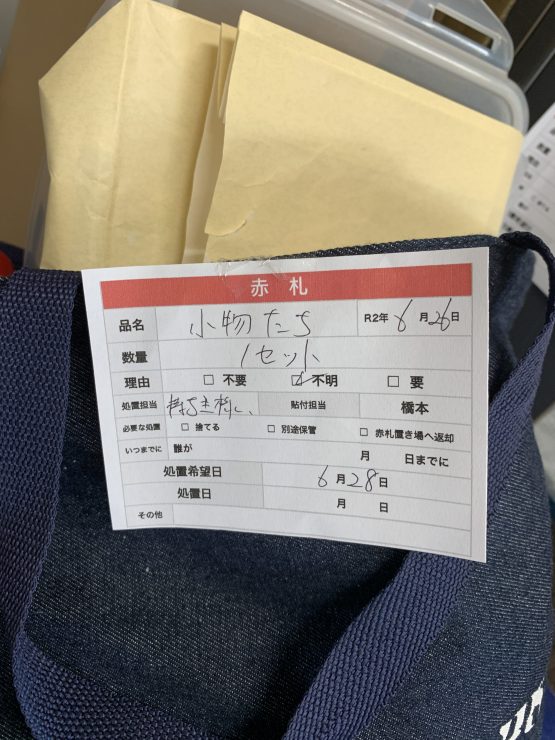 赤札
品名 小物たち R2年 6月 26日
数量 1セット
理由 □ 不要 ☑ 不明 □ 要
処置担当 貼付担当 橋本
必要な処置 □ 捨てる □ 別途保管 □ 赤札置き場へ返却
いつまでに 誰が 月 日までに
処置希望日 6月28日
処置日 月 日
その他